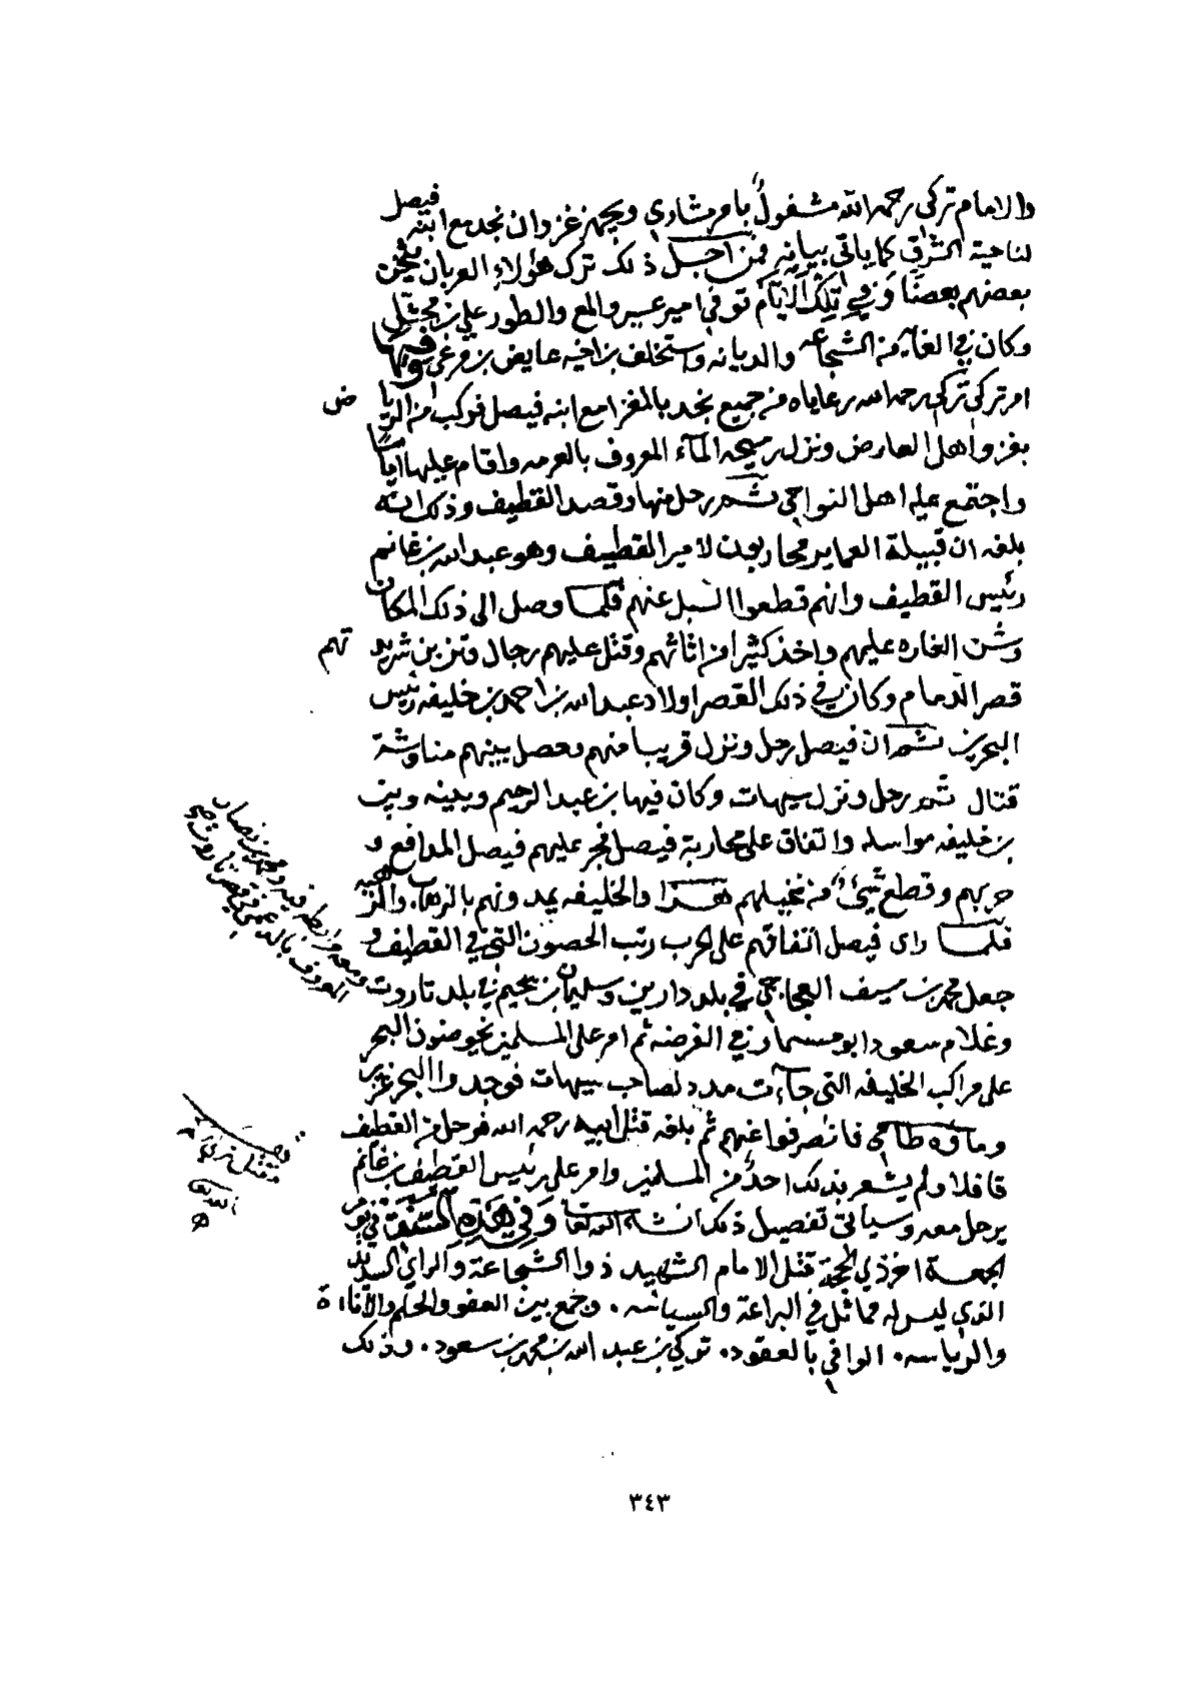 والامام تركي رحمه الله مشغول بامر مشاري ويجهز غزوان نجد مع ابنه فيصل
لناحية الشرق كما ياتي بيانه فمن اجل ذلك ترك هؤلاء العربان
بعضهم بعضا وفي تلك الايام توفي امير عسير والمع والطور علي بن مجثل
وكان في الغايه من الشجاعه والديانه واستخلف بن اخيه عايض بن مرعي وفيها
امر تركي تركي رحمه الله رعاياه من جميع نجد بالمغزا مع ابنه فيصل فركب من الرياض
بغزو اهل العارض ونزل رميحه الماء المعروف بالعرمه واقام عليها اياما
واجتمع عليه اهل النواحي ثم رحل منها وقصد القطيف وذلك انه
بلغه ان قبيلة العماير محاربون لامير القطيف وهو عبدالله بن غانم
رئيس القطيف وانهم قطعوا السبل عنهم فلما وصل الى ذلك المكان
وشن الغاره عليهم واخذ كثيرا من اثاثهم وقتل عليهم رجال وتزبن شريدتهم
قصر الدمام وكان في ذلك القصر اولاد عبدالله بن احمد بن خليفه رئيس
البحرين ثم ان فيصل رحل ونزل قريبا منهم وحصل بينهم مناوشة
قتال ثم رحل ونزل سيهات وكان فيها بن عبد الرحيم وبينه وبين
بن خليفه مواسله واتفاق على محاربة فيصل فجر عليهم فيصل المدافع و
حربهم وقطع شيئ من نخيلهم هذا والخليفه يمدونهم بالرجال والزهبه
فلما راى فيصل اتفاقهم على الحرب رتب الحصون التي في القطيف و
جعل محمد بن سيف العجاجي في بلد دارين وسليمان بن سحيم في بلد تاروت
ومعه مرابطه فيه
وغلام سعود ابو مسمار في الفرضه ثم امر على المسلمين يخوضون البحر
على مراكب الخليفه التي جاءت مدد لصاحب سيهات فوجدوا البحر غزير
وماؤه طامي فانصرفوا عنهم ثم بلغه قتل ابيه رحمه الله فرحل من القطيف
قافلا ولم يشعر بذلك احد من المسلمين وامر على رئيس القطيف بن غانم
يرحل معه وسياتي تفصيل ذلك انشاء الله تعالى وفي هذه السنة في يوم
الجمعة اخر ذي الحجة قتل الامام الشهيد ذوا الشجاعة والراي السديد
الذي ليس له مماثل في البراعة والسياسه. وجمع بين العفو والحلم والاناءة
والرياسه. الوافي بالعقود. تركي بن عبد الله بن محمد بن سعود. وذلك
٣٤٣